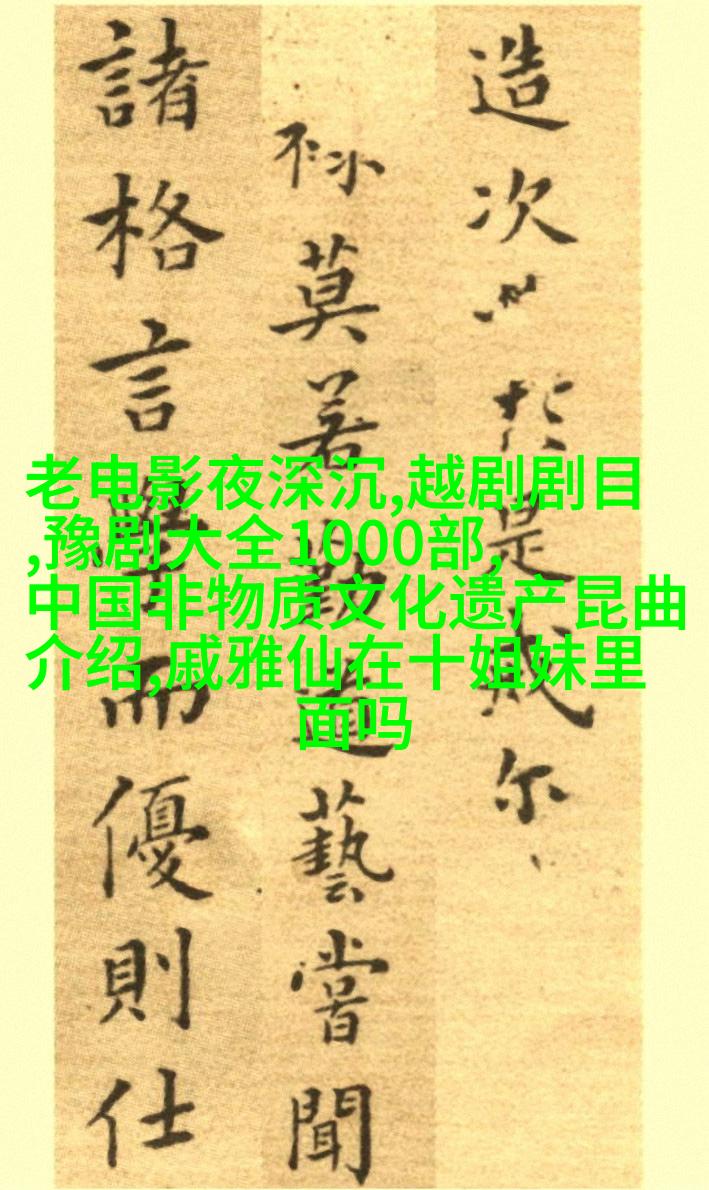 造次必於是戒尔
莫若勤道藝嘗聞
諸格言學而優則仕
老电影夜深沉,越剧剧目
,豫剧大全1000部,
中国非物质文化遗产昆曲
介绍,戚雅仙在十姐妹里
面吗